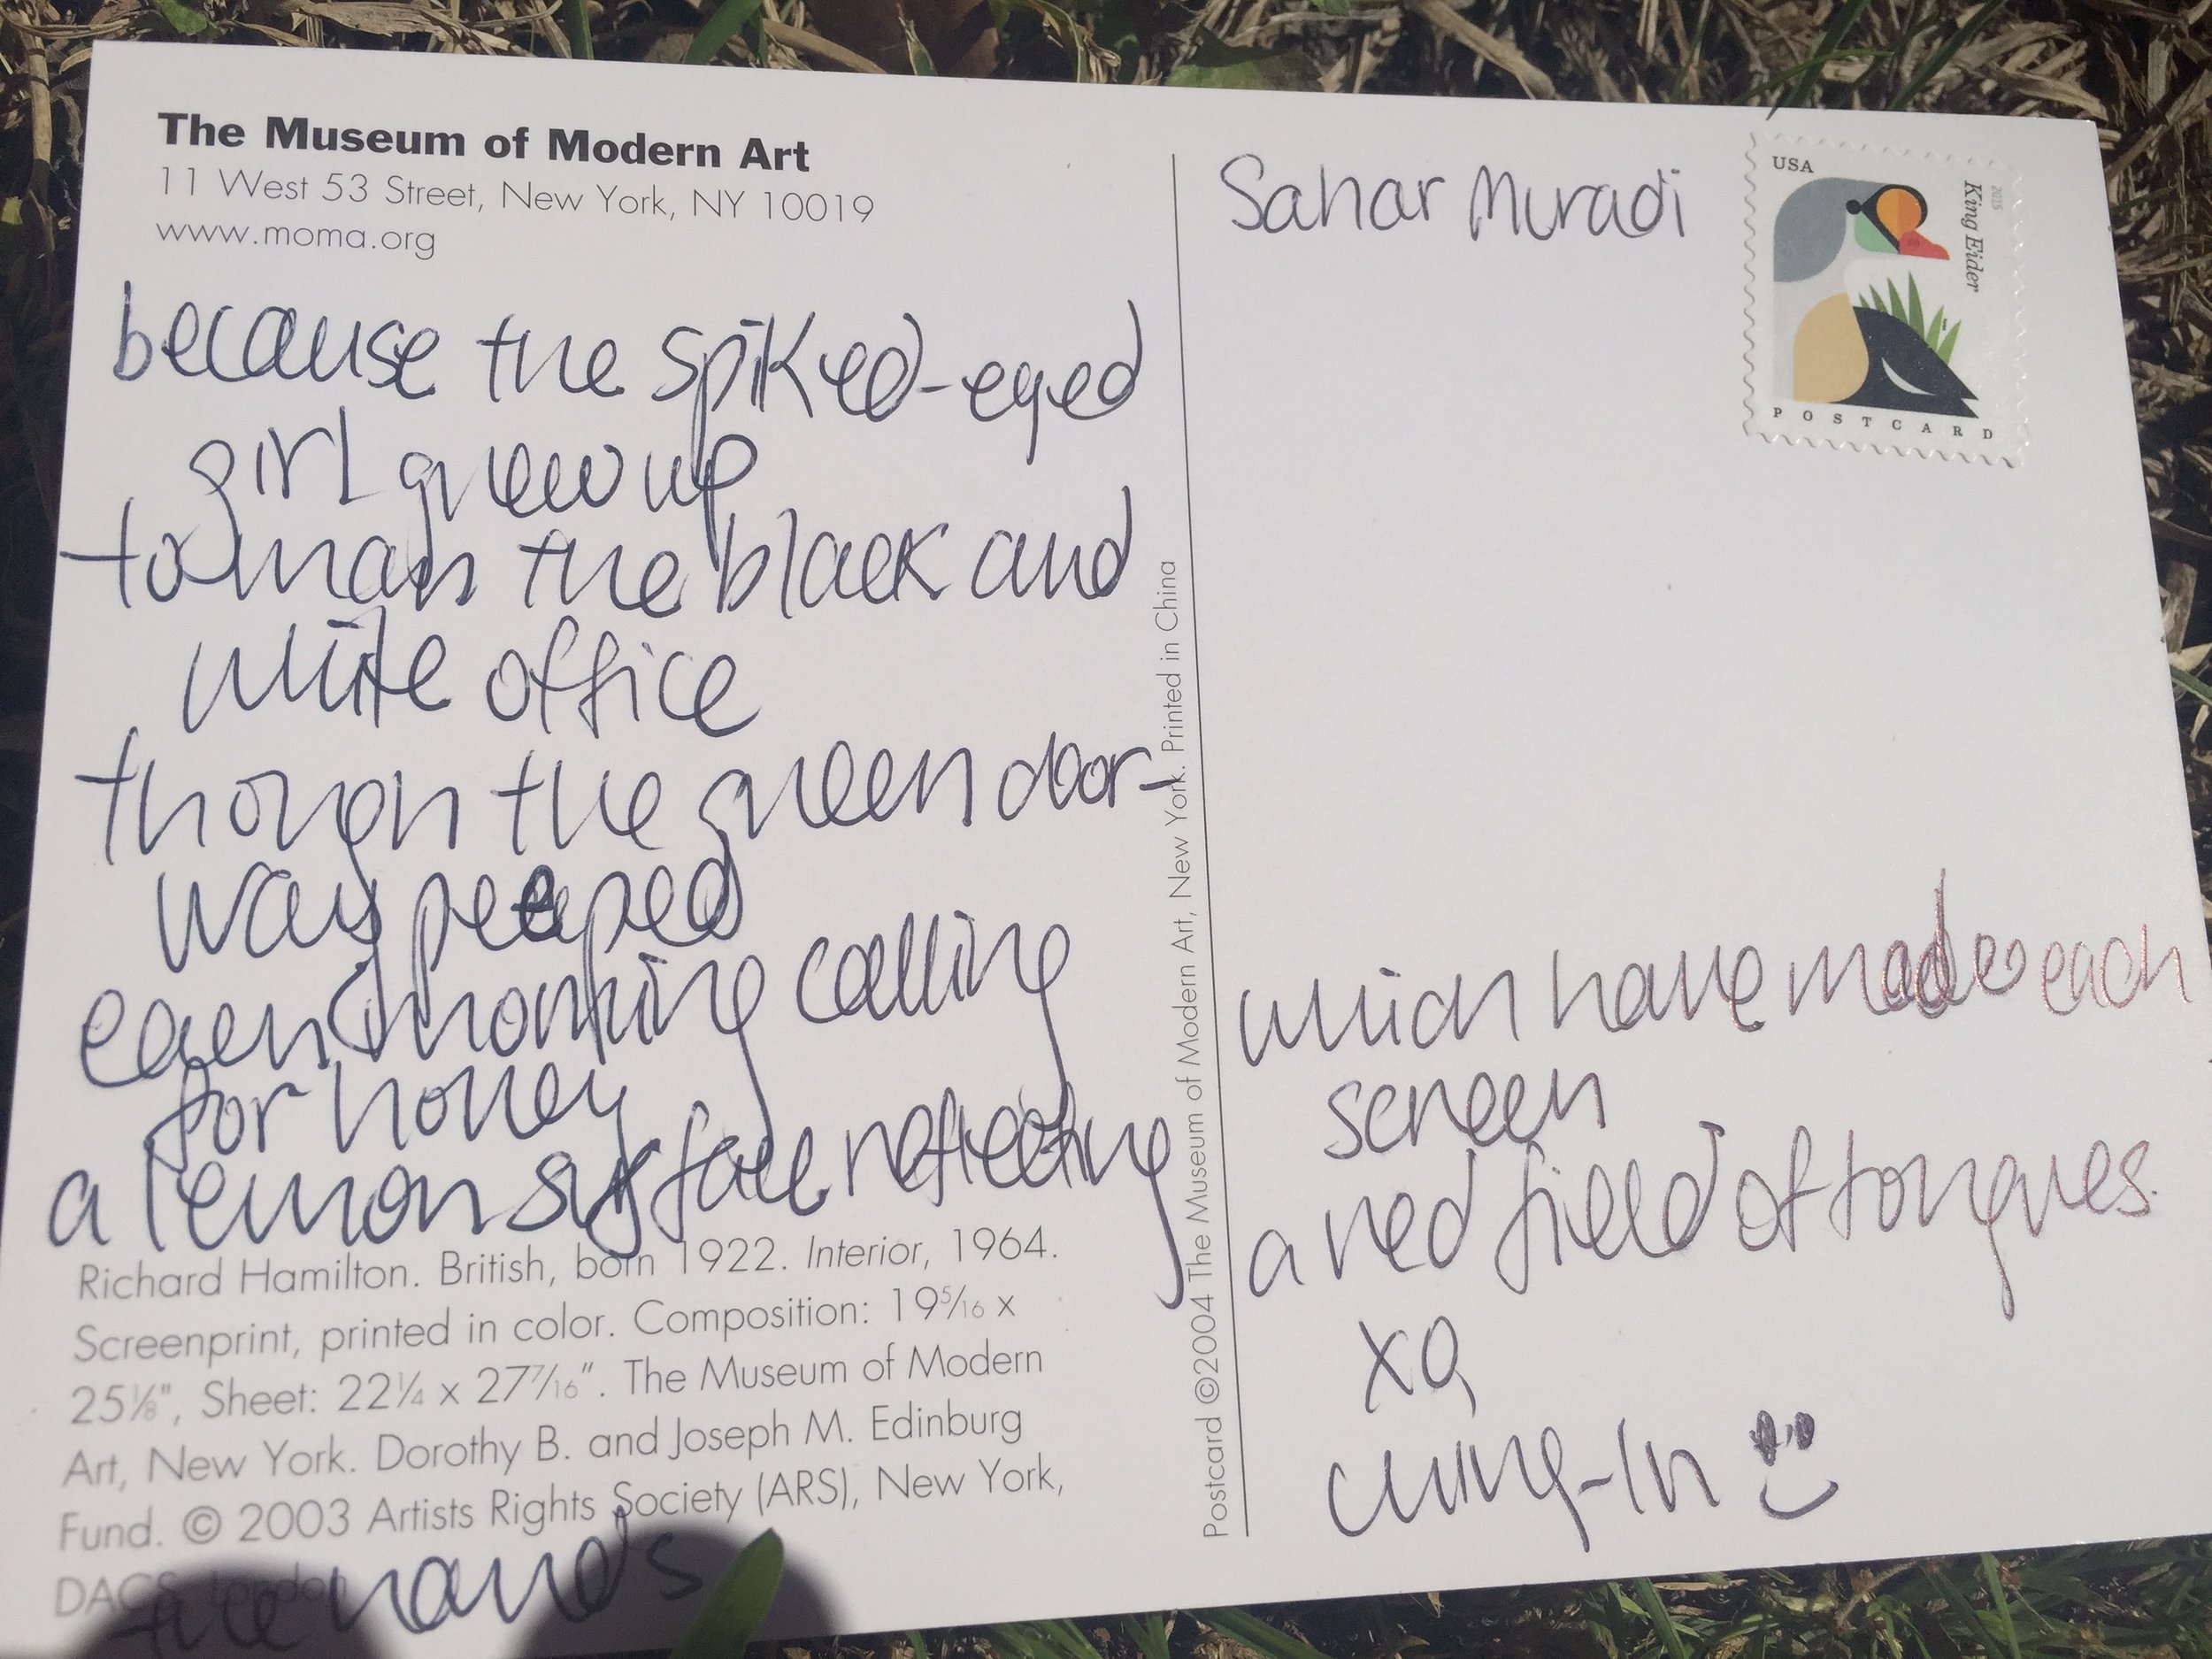 The Museum of Modern Art
11 West 53 Street, New York, NY 10019
www.moma.org
because the spiked-eyed
girl grew up
to man the black and
white office
though the green door-
way peeped
each honking calling
for honey
a lemon surface reflecting
Richard Hamilton. British, born 1922. Interior, 1964.
Screenprint, printed in color. Composition: 19 5/16 x
25 1/8", Sheet: 22 1/4 x 27 7/16". The Museum of Modern
Art, New York. Dorothy B. and Joseph M. Edinburg
Fund. © 2003 Artists Rights Society (ARS), New York,
DACS, London
the hands
Postcard ©2004 The Museum of Modern Art, New York. Printed in China
Sahar Muradi
USA
2015
King Eider
POSTCARD
which have made each
screen
a red field of tongues.
xo,
Ching-In